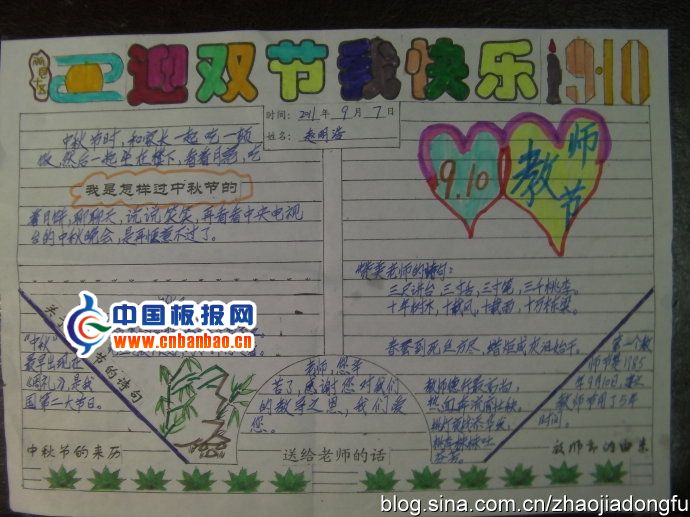 迎双节我快乐 9.10
时间：2011年9月7日
姓名：
中秋节时，和家长一起吃一顿
饭，然后一起坐在楼下，看着月亮，吃
我是怎样过中秋节的
着月饼，聊聊天，说说笑笑，再看看中央电视
台的中秋晚会，是再惬意不过了。
9.10
教师节
赞美老师的诗句：
三尺讲台，三寸舌，三寸笔，三千桃李。
十年树木，十载风，十载雨，十万栋梁。
春蚕到死丝方尽，蜡炬成灰泪始干。
中国板报网
www.cnbanbao.cn
的诗句
"中秋"
最早出现在
国第二大节日。
中秋节的来历
老师，您辛
苦了，感谢您对我们
的教导之恩，我们爱
您。
送给老师的话
教师德行最高尚，
第一个教
师节是1985
年9月10日，
时间。
教师节的由来
blog.sina.com.cn/zhaojiadongfu